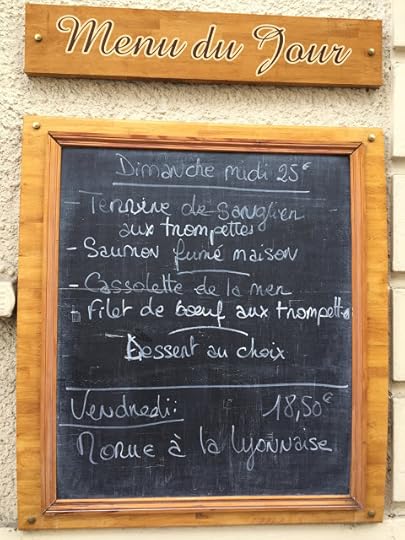 Menu du Jour
Dimanche midi 25€
- Terrine de Sanglier
aux trompettes
- Saumon fumé maison
- Cassolette de la mer
- Filet de bœuf aux trompettes
Dessert au choix
Vendredi: 18,50€
Morue à la lyonnaise